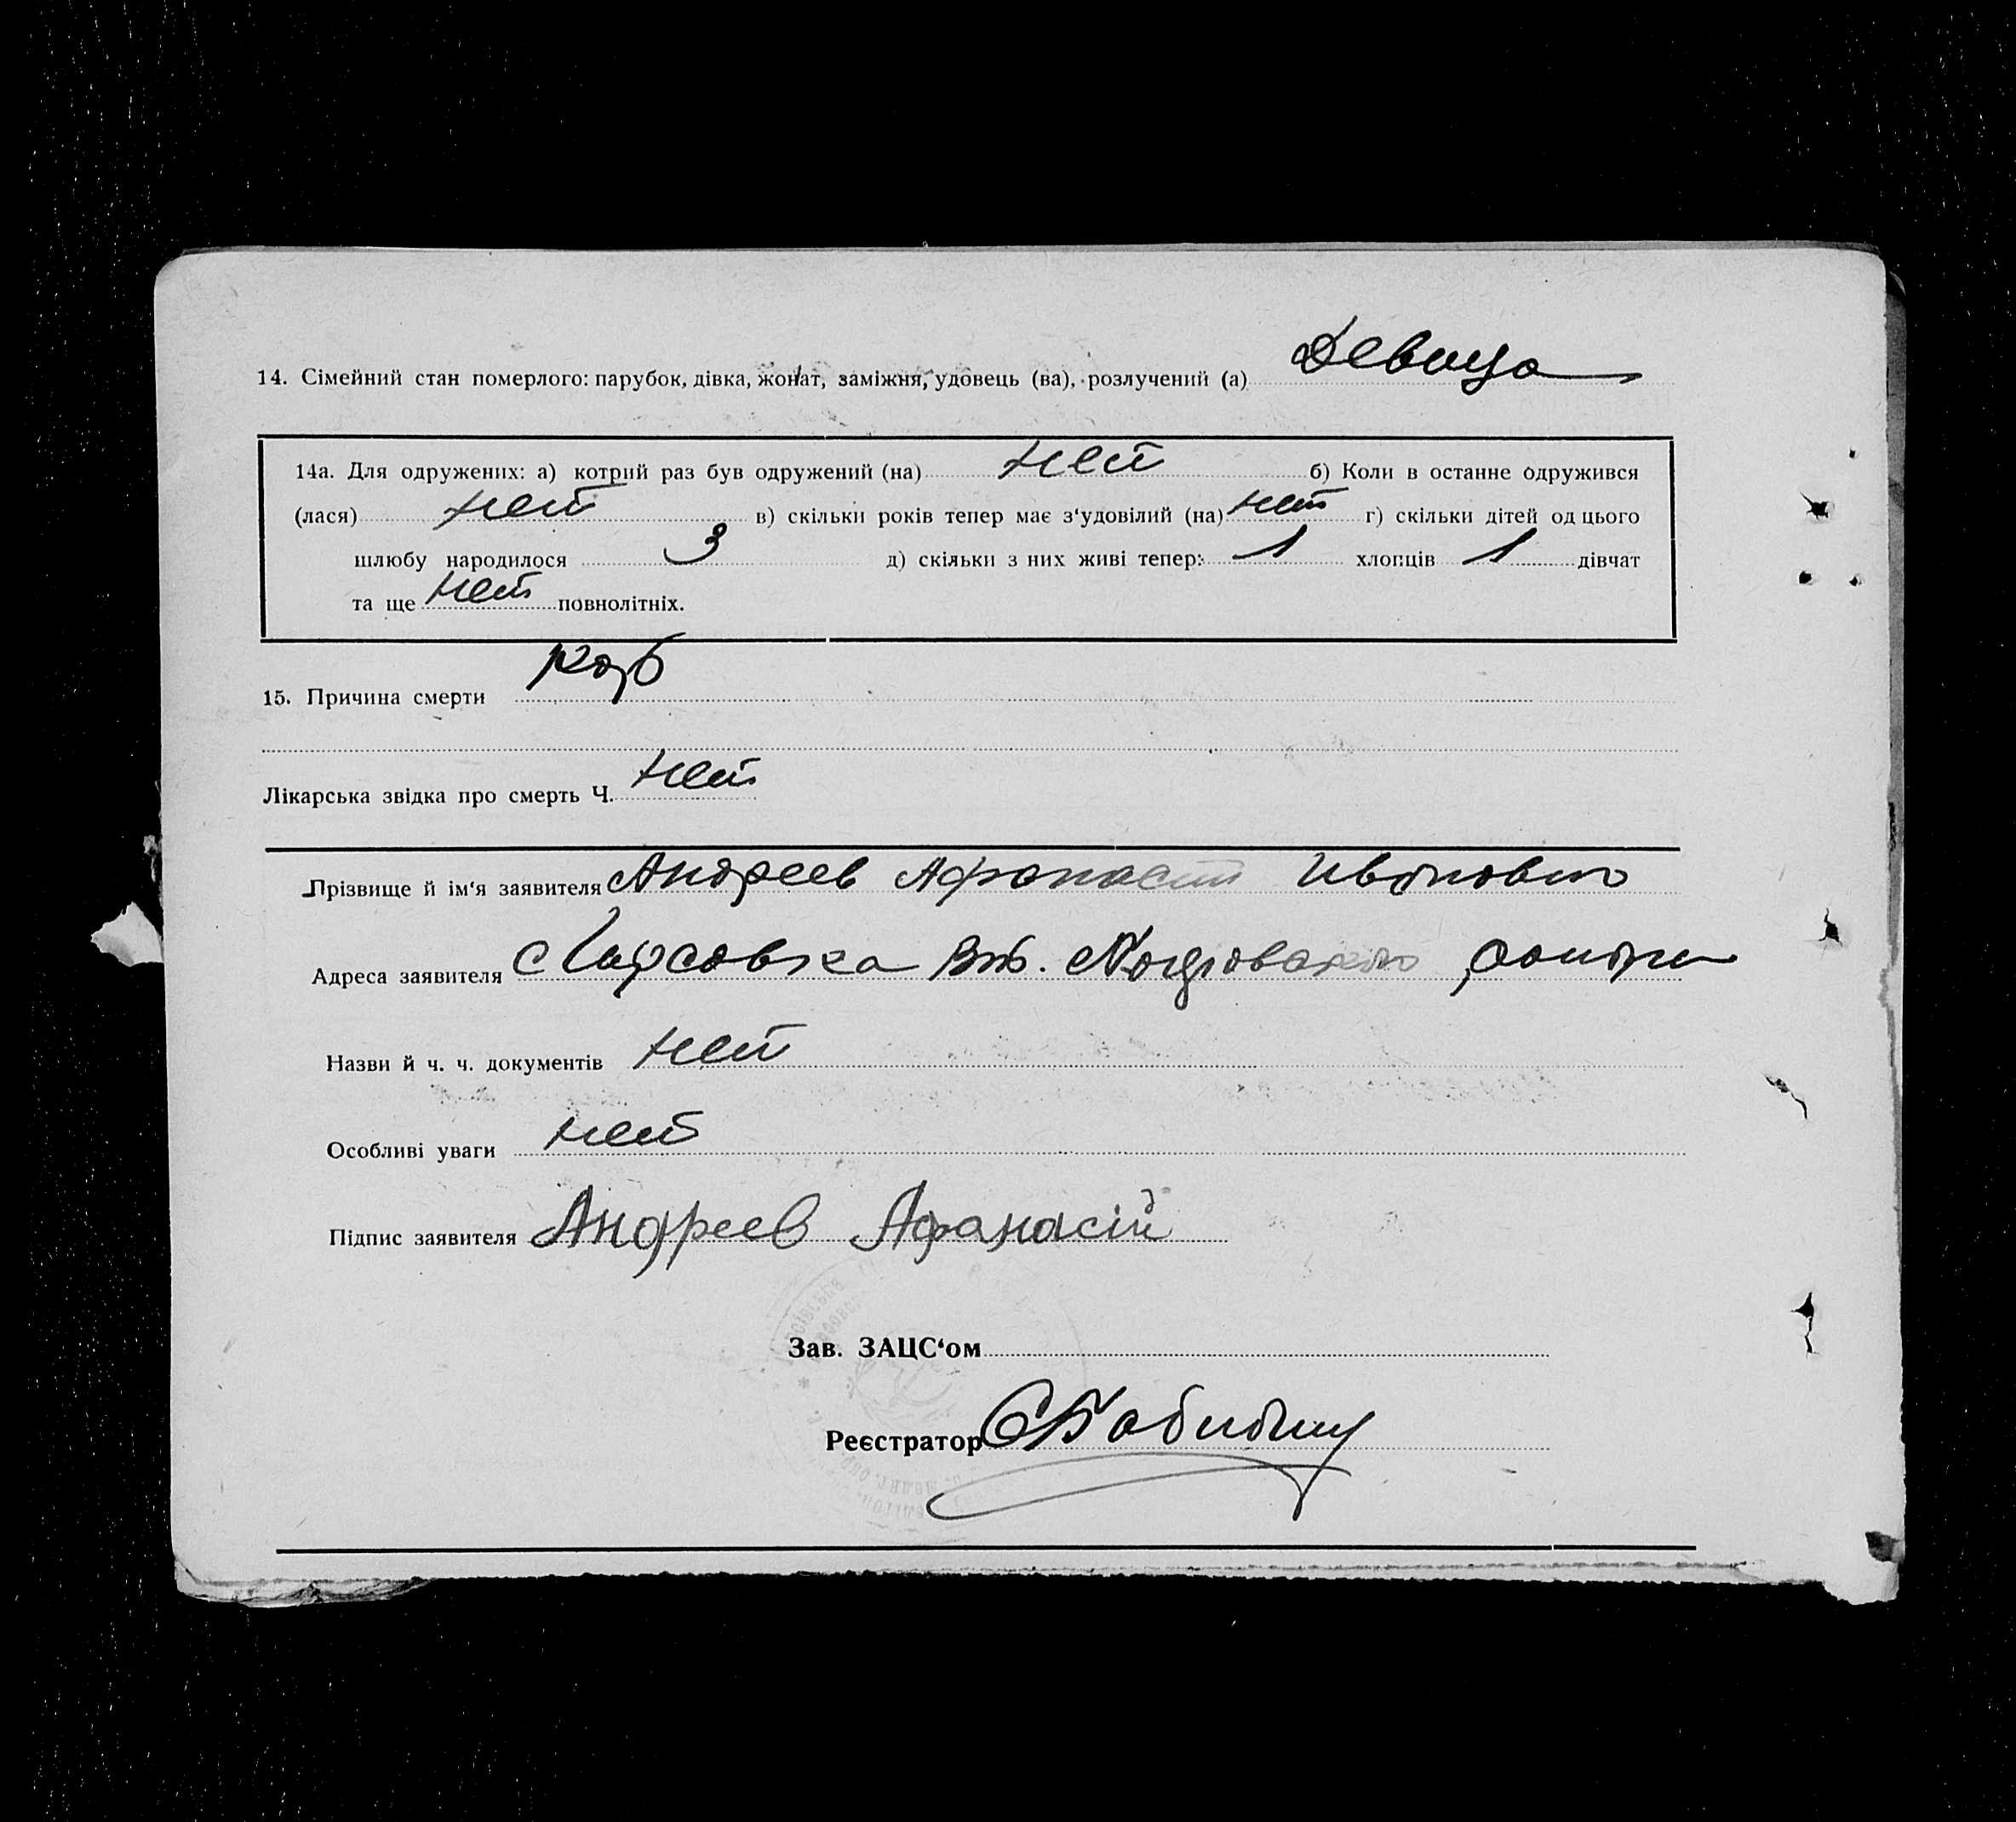 14. Сімейний стан померлого: парубок, дівка, жонат, заміжня, удовець (ва), розлучений (а) Девица
14а. Для одружених: а) котрий раз був одружений (на) нет б) Коли в останне одружився
(лася) нет в) скільки років тепер має з‘удовілий (на) нет г) скільки дітей од цього
шлюбу народилося 3 д) скільки з них живі тепер: 1 хлопців 1 дівчат
та ще нет повнолітніх.
15. Причина смерти
Лікарська звідка про смерть Ч. нет
Прізвище й ім‘я заявителя Андреев Афанасий Иванович
Адреса заявителя с района
Назви й ч. ч. документів нет
Особливі уваги нет
Підпис заявителя Андреев Афанасій
Зав. ЗАЦС‘ом
Реєстратор